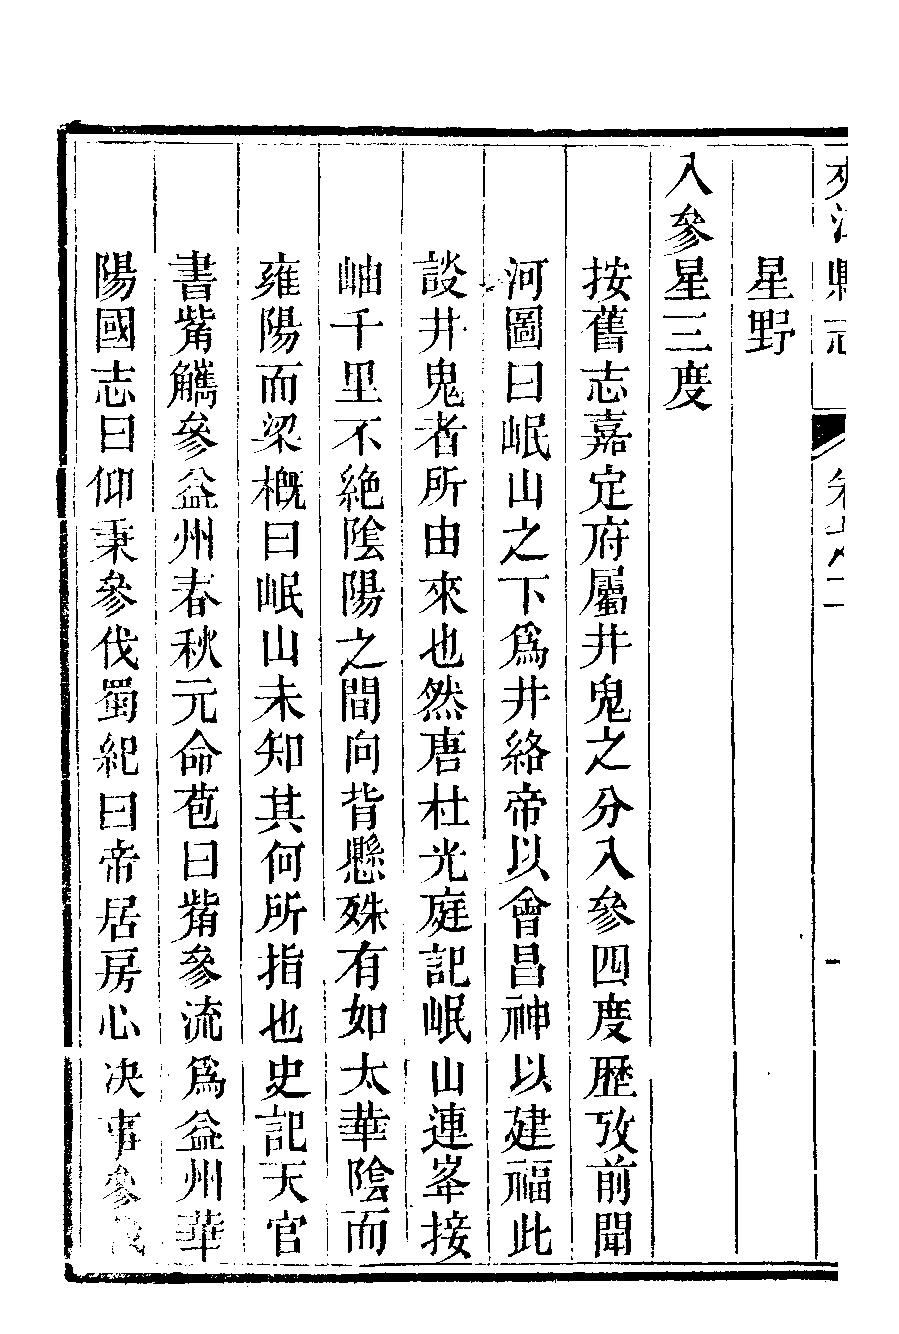 夾江縣志
星野
入參星三度
按舊志嘉定府屬井鬼之分入參四度歷攷前聞
河圖曰岷山之下爲井絡帝以會昌神以建福此
談井鬼者所由來也然唐杜光庭記岷山連峯接
岫千里不絕陰陽之間向背懸殊有如太華陰而
雍陽而梁槪曰岷山未知其何所指也史記天官
書觜觿參益州春秋元命苞曰觜參流爲益州華
陽國志曰仰秉參伐蜀紀曰帝居房心决事參伐